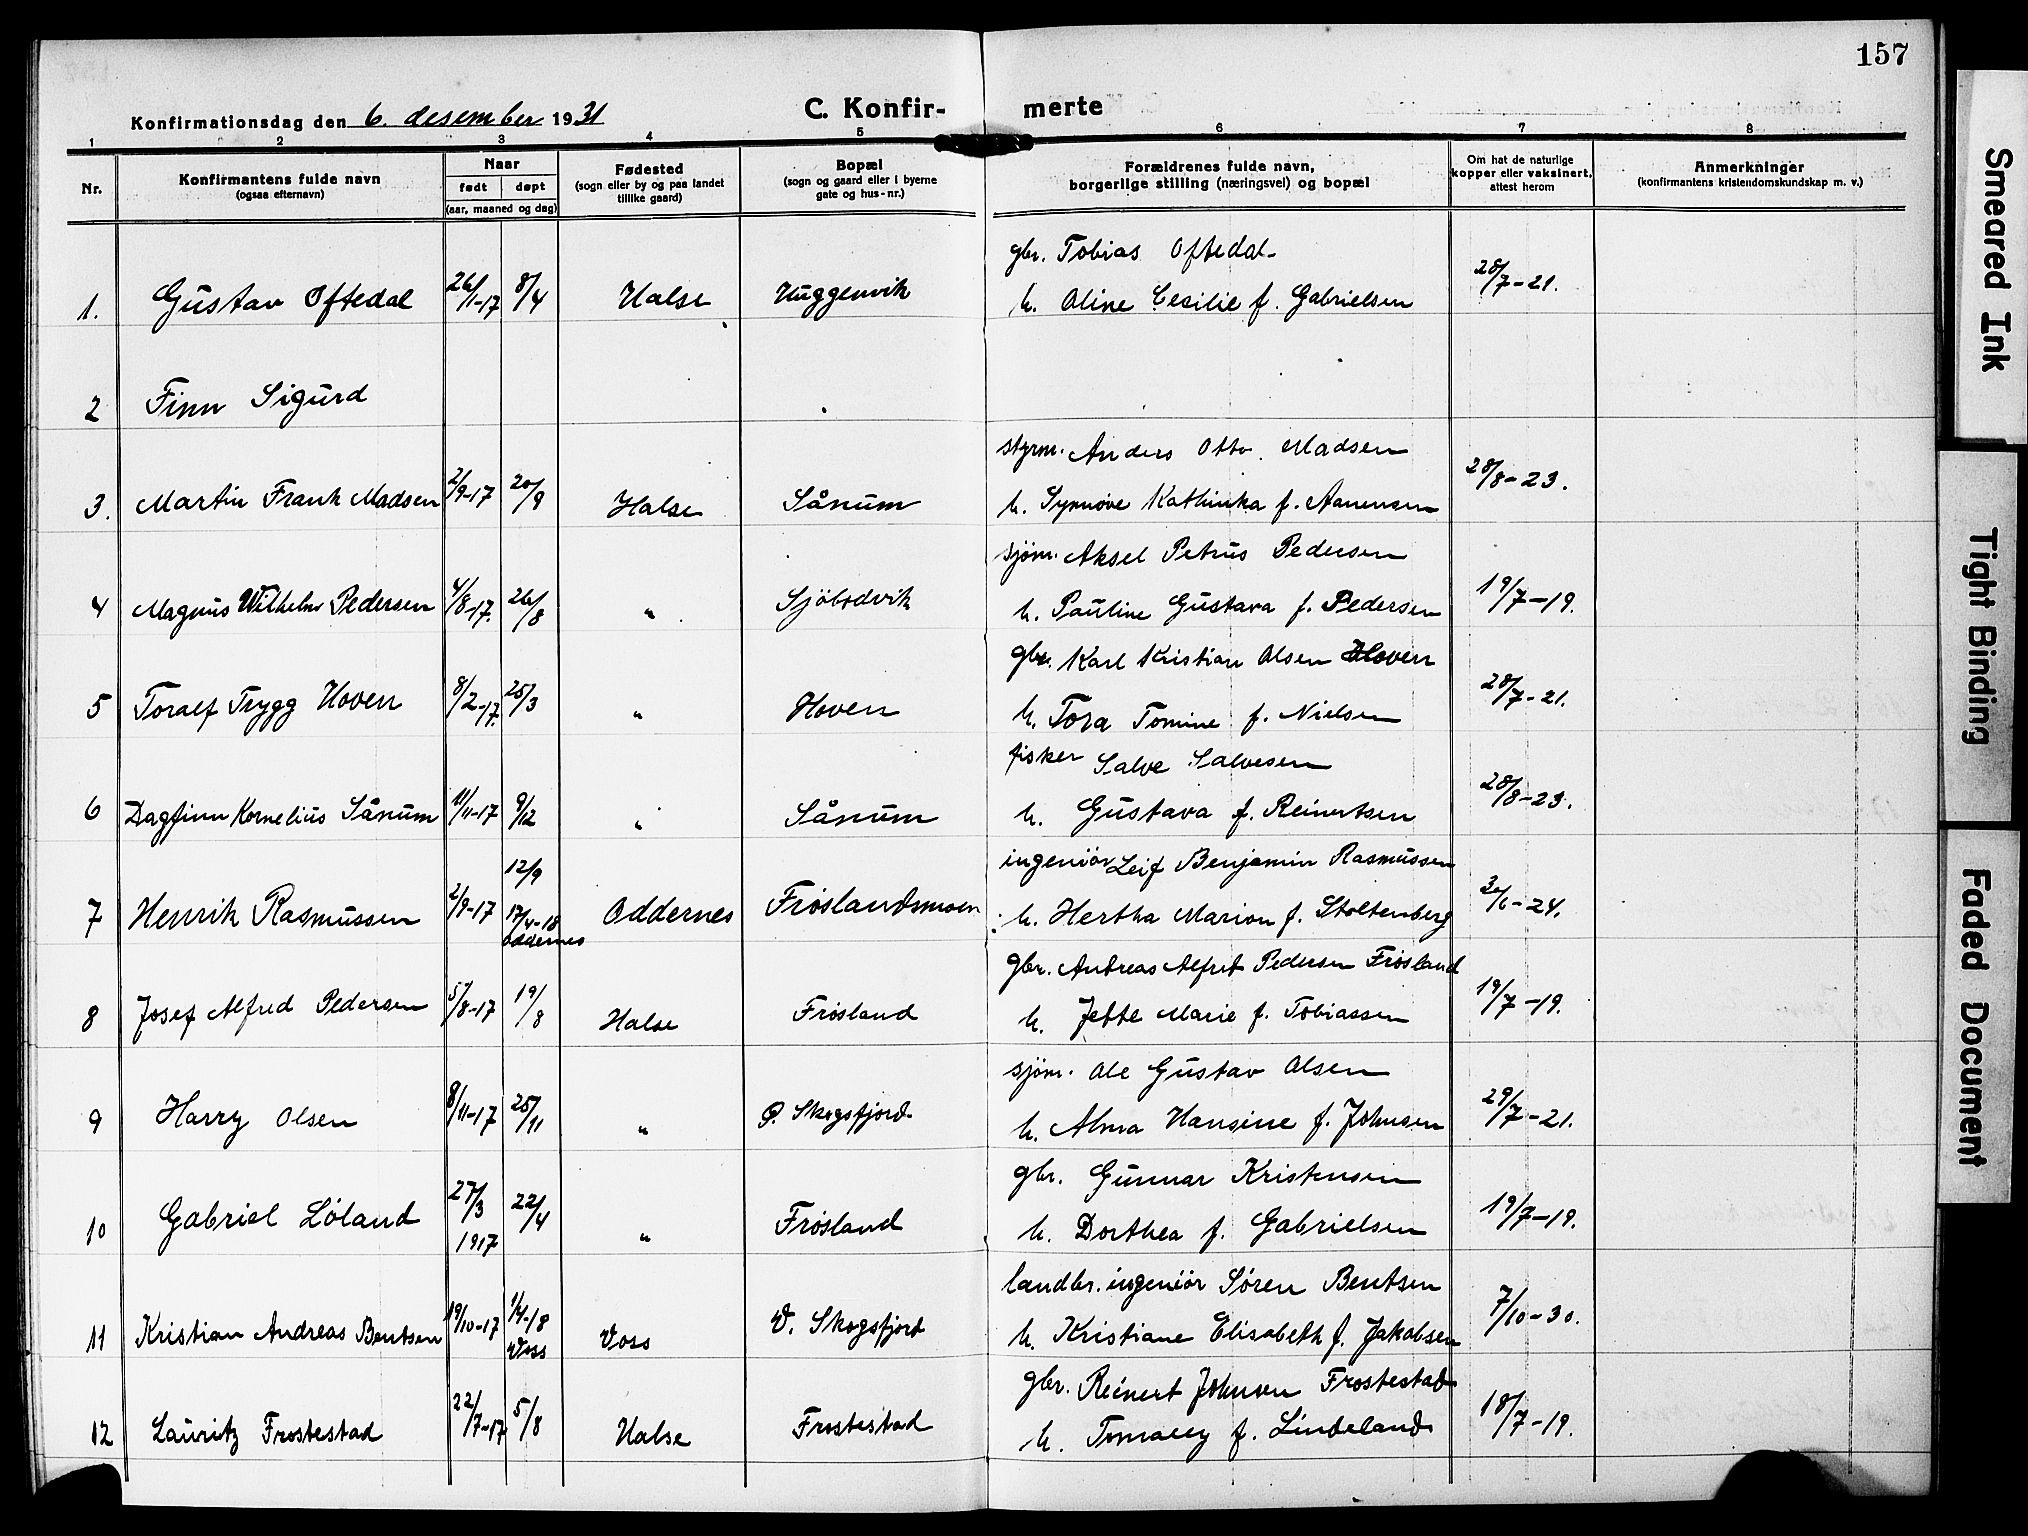 157
Konfirmationsdag den 6. desember 1931
C. Konfir- merte
1 2 3 4 5 6 7 8
Nr.
Konfirmantens fulde navn
(ogsaa efternavn)
Naar
født døpt
(aar, maaned og dag)
Fødested
(sogn eller by og paa landet
tillike gaard)
Bopæl
(sogn og gaard eller i byerne
gate og hus-nr.)
Forældrenes fulde navn,
borgerlige stilling (næringsvei) og bopæl
Om hat de naturlige
kopper eller vaksinert,
attest herom
Anmerkninger
(konfirmantens kristendomskundskap m. v.)
gbr. Tobias Oftedal
1. Gustav Oftedal 26/1-17 8/4 Halse Huggenvik h. Oline Cecilie f. Gabrielsen 28/7-21.
2 Finn Sigurd
styrm. Anders Otto Madsen
3. Martin Frank Madsen 2/9-17 20/9 Halse Sånum h. Synnøve Kathinka f. Aanensen 28/8-23.
sjøm. Aksel Petrus Pedersen
4 Magnus Wilhelm Pedersen 4/8-17. 26/8 " Sjöbodvik h. Pauline Gustava f. Pedersen 19/7-19.
gbr. Karl Kristian Olsen Hoven
5 Toralf Trygg Hoven 8/2-17. 25/3 " Hoven h. Tora Tomine f. Nielsen 28/7-21.
fisker Salve Salvesen
6 Dagfinn Kornelius Sånum 11/11-17 9/12 " Sånum h. Gustava f. Reinertsen 28/8-23.
12/9 ingeniör Leif Benjamin Rasmussen
7 Henrik Rasmussen 2/9-17 17/4-18 Oddernes Frøslandsmoen h. Hertha Marion f. Stoltenberg 30/6-24.
Oddernes
gbr. Andreas Alfred Pedersen Frøsland
8 Josef Alfred Pedersen 5/8-17 19/8 Halse Frøsland h. Jette Marie f. Tobiassen 19/7-19.
sjøm. Ole Gustav Olsen
9 Harry Olsen 8/11-17 25/11 " Ø. Skogsfjord h. Alma Hansine f. Johnsen 29/7-21.
gbr. Gunnar Kristensen
10 Gabriel Løland 27/3 1917 22/4 " Frøsland h. Dorthea f. Gabrielsen 19/7-19.
landbr. ingeniör Søren Bentsen
11 Kristian Andreas Bentsen 19/10-17 1/4-18 Voss Voss V. Skogsfjord h. Kristiane Elisabeth f. Jakobsen 7/10-30.
gbr. Reinert Johnsen Frostestad
12 Lauritz Frostestad 22/7-17 5/8 Halse Frostestad h. f. Lindeland 18/7-19.
Smeared Ink
Tight Binding
Faded Document